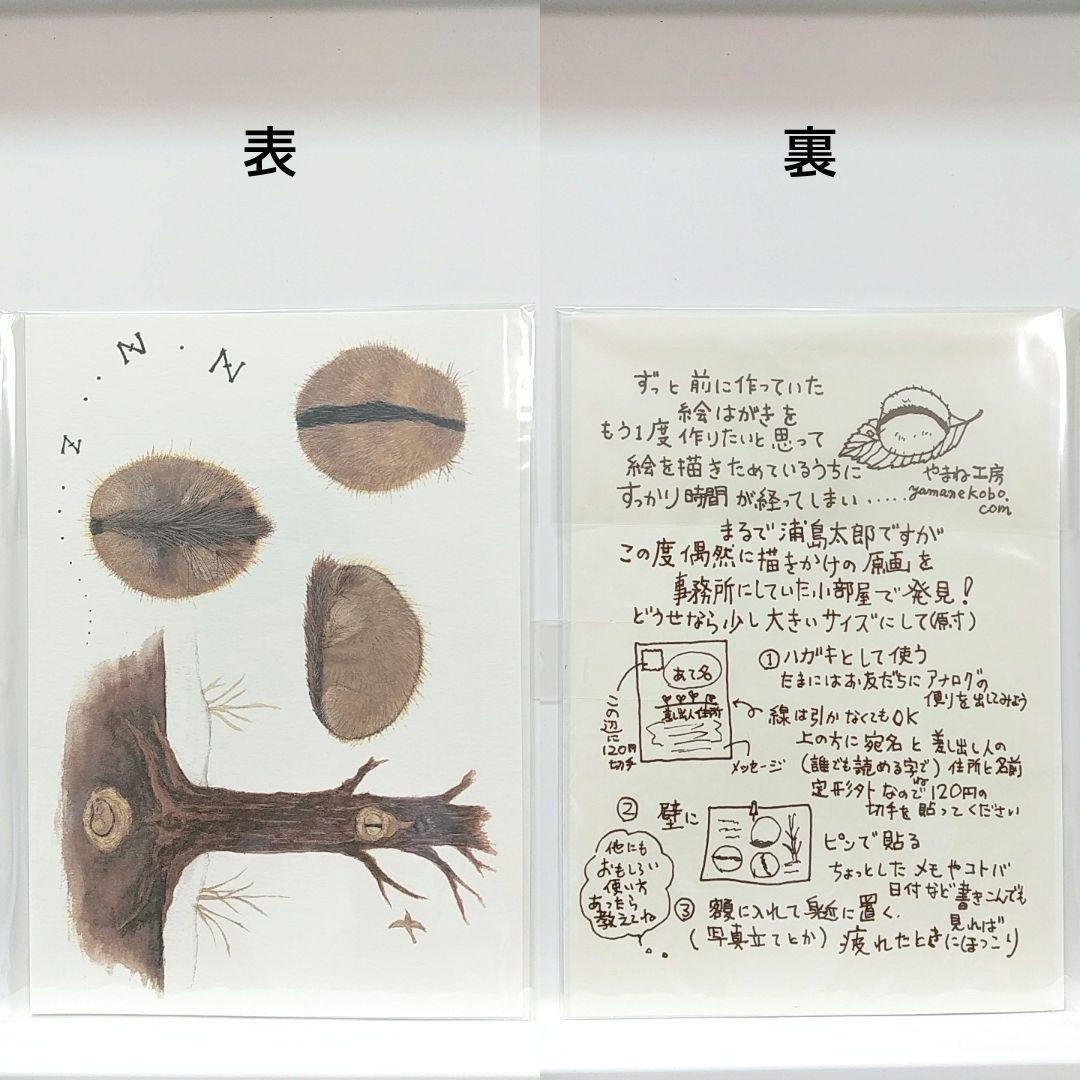 表
Z・Z
Z
裏
ずっと前に作っていた
絵はがきを
もう1度作りたいと思って
絵を描きためているうちに
すっかり時間が経ってしまい.....
やまね工房
yamanekobo.
com
まるで浦島太郎ですが
この度偶然に描きかけの原画を
事務所にしていた小部屋で発見!
どうせなら少し大きいサイズにして(原寸)
①ハガキとして使う
たまにはお友だちにアナログの
便りを出してみよう
あて名
差し出人住所
この辺に
120円
切手
メッセージ
線は引かなくてもOK
上の方に宛名と差し出し人の
(誰でも読める字で)住所と名前
定形外なのでね120円の
切手を貼ってください
②壁に
ピンで貼る
ちょっとしたメモやコトバ
日付など書きこんでも
他にも
おもしろい
使い方
あったら
教えてね
③額に入れて身近に置く.
(写真立てとか)疲れたときに見ればほっこり)